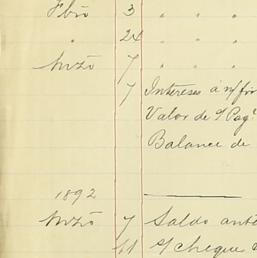 Fbro 3 " " "
" 24 " " "
Mzo 7 " " "
7 Intereses á n/fv
Valor de s/ Pag
Balance de
1892
Mzo 7 Saldo ante
11 s/ cheque